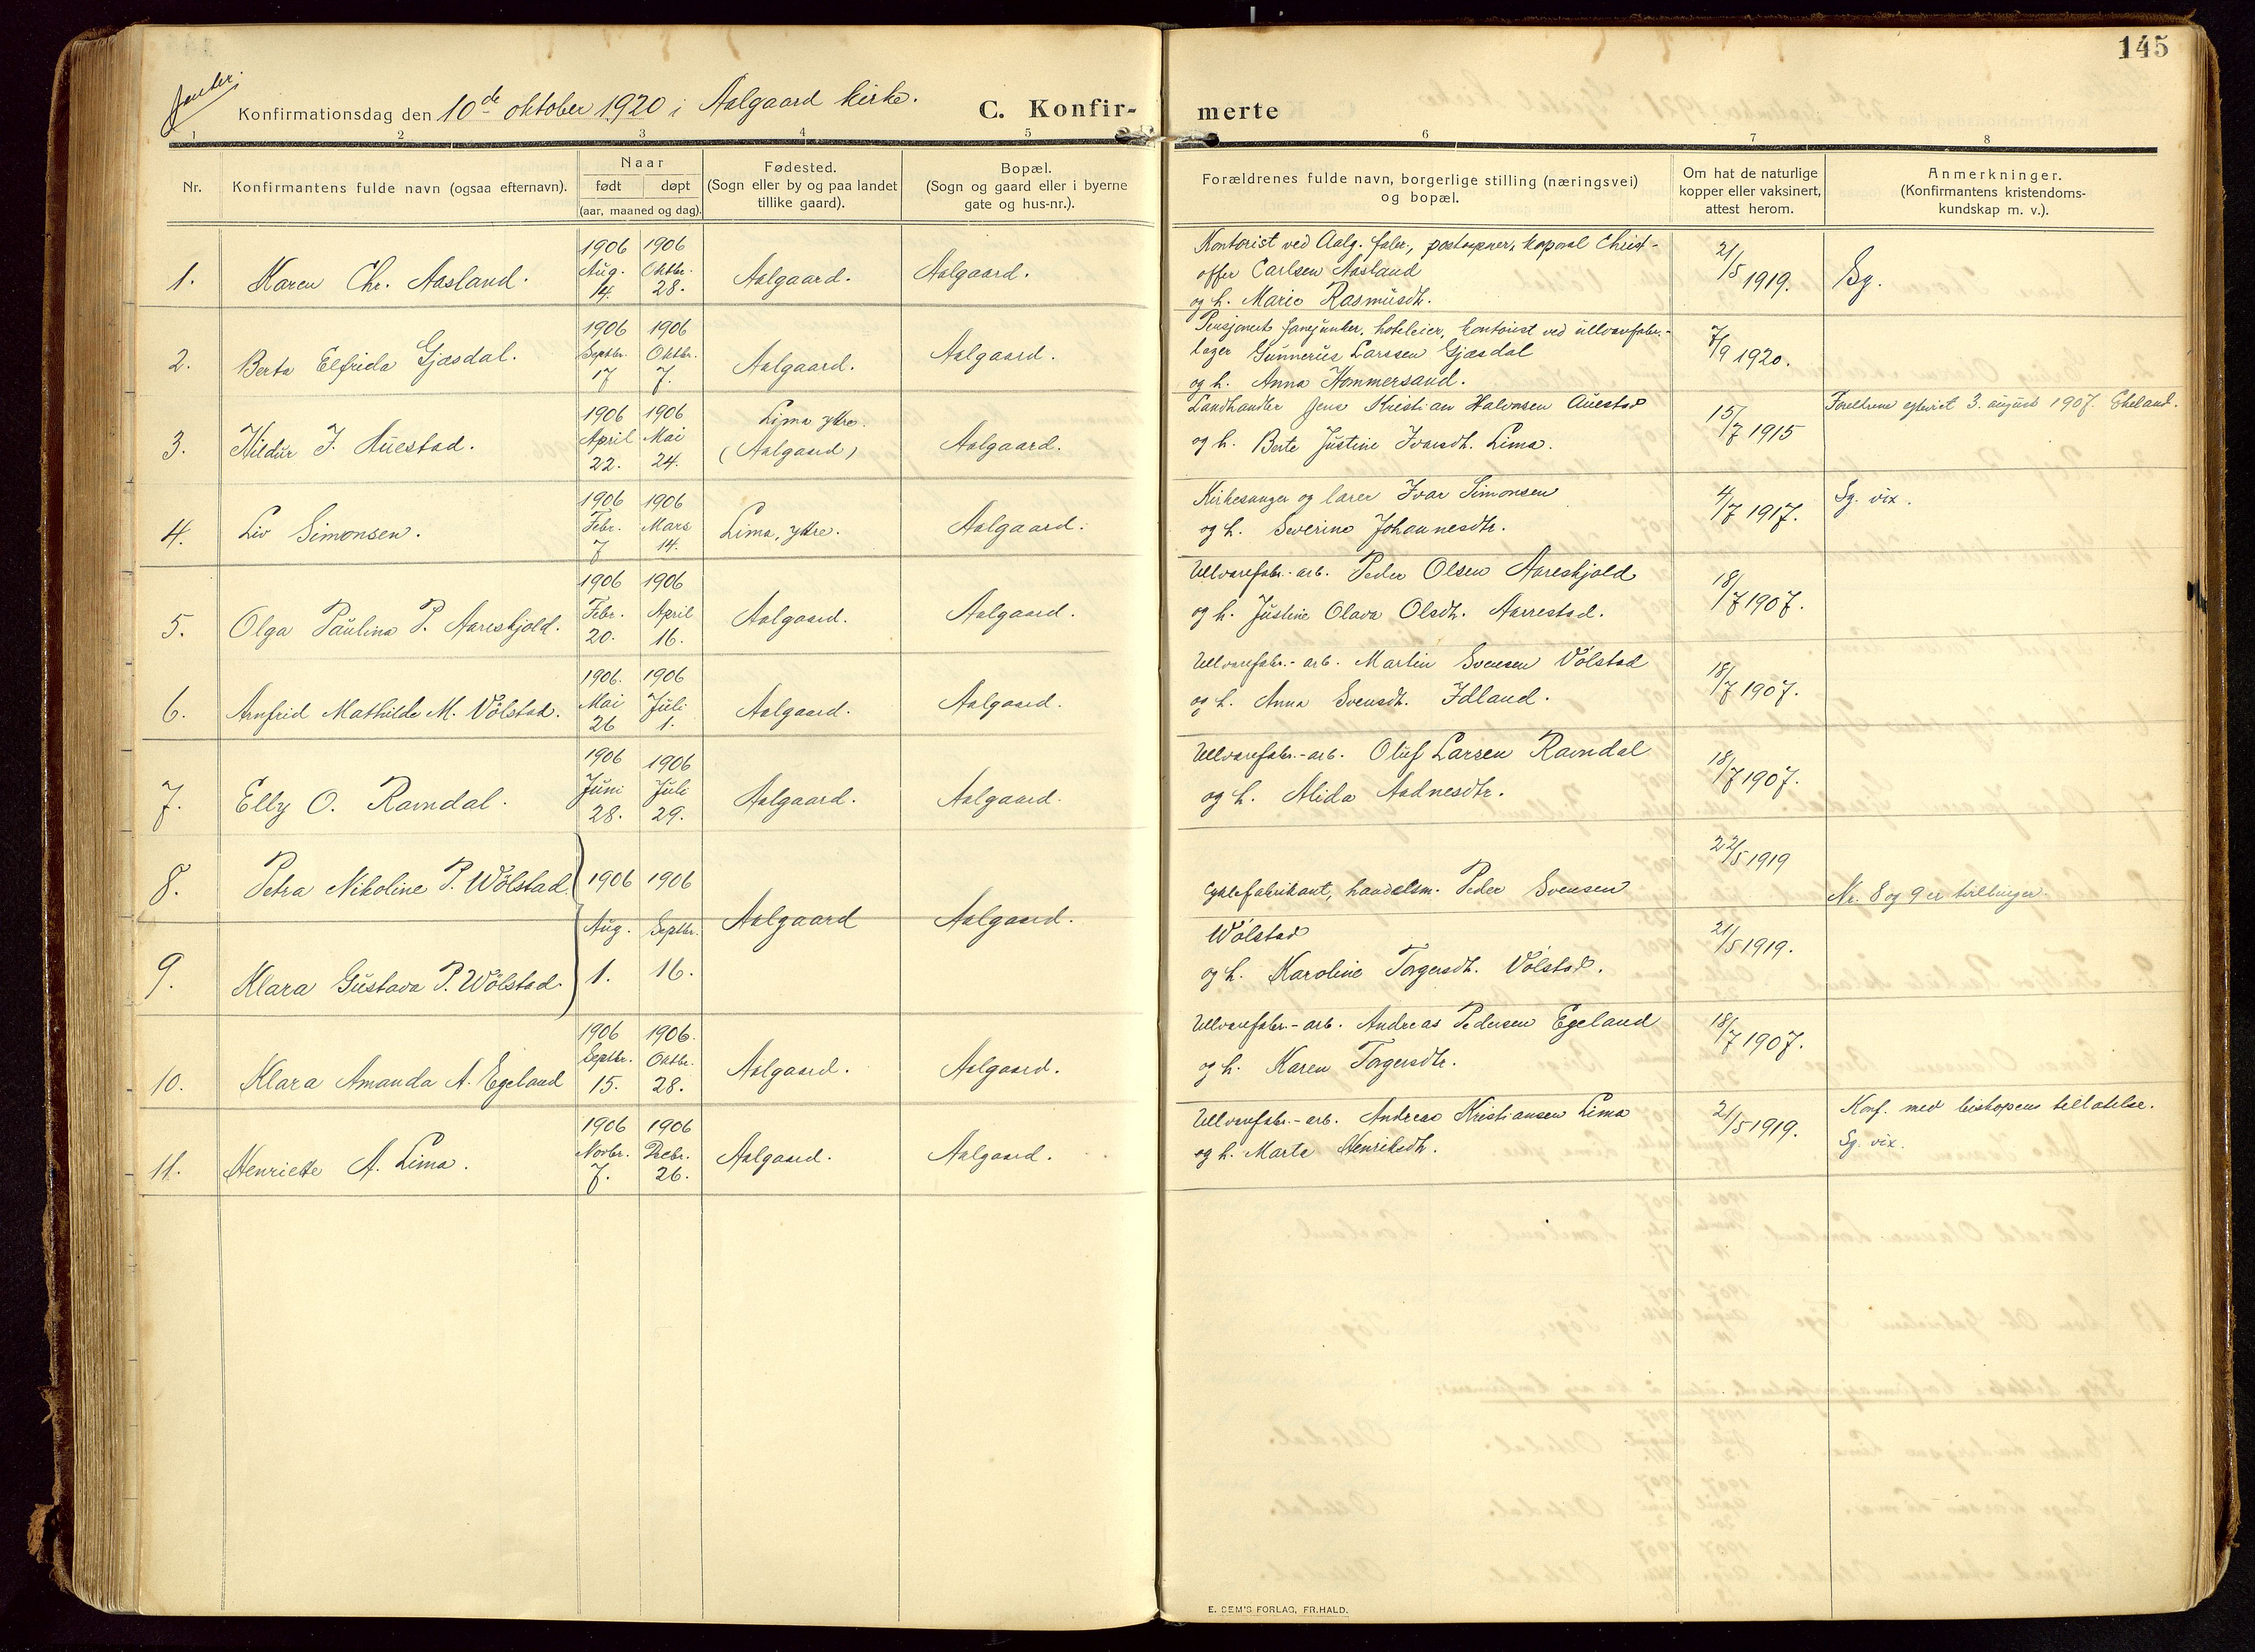 145
Jenter.
Konfirmationsdag den 10de oktober 1920 i Aalgaard kirke. C. Konfir- merte
1 2 3 4 5 6 7 8
Nr.
Konfirmantens fulde navn (ogsaa efternavn).
Naar
født døpt
(aar, maaned og dag).
Fødested.
(Sogn eller by og paa landet
tillike gaard).
Bopæl.
(Sogn og gaard eller i byerne
gate og hus-nr.).
Forældrenes fulde navn, borgerlige stilling (næringsvei)
og bopæl.
Om hat de naturlige
kopper eller vaksinert,
attest herom.
Anmerkninger.
(Konfirmantens kristendoms-
kundskap m. v.).
1. Karen Chr. Aasland.
1906 1906
Aug. Oktbr.
14. 28.
Aalgaard. Aalgaard.
Kontorist ved Aalg. fabr., postaapner, korporal Christ-
offer Carlsen Aasland
og h. Marie Rasmusdtr.
21/5 1919.
Sg.
2. Berta Elfrida Gjæsdal.
1906 1906
Septbr. Oktbr.
17 7.
Aalgaard. Aalgaard.
Pensjonert fanejunker, hoteleier, kontorist ved ullvarefabr.-
lager Gunnerus Larssen Gjæsdal
og h. Anna Hommersand.
7/9 1920.
3. Hildur J. Auestad.
1906 1906
April Mai
22. 24.
Lima ytre.
(Aalgaard)
Aalgaard.
Landhandler Jens Kristian Halvorsen Auestad
og h. Berte Justine Ivarsdtr. Lima.
15/7 1915
3. august 1907.
4. Liv Simonsen.
1906 1906
Febr. Mars
7 14.
Lima, ytre. Aalgaard.
Kirkesanger og lærer Ivar Simonsen
og h. Severine Johannesdtr.
4/7 1917.
Sg. vix.
5. Olga Paulina P. Aareskjold.
1906 1906
Febr. April
20. 16.
Aalgaard. Aalgaard.
Ullvarefabr.-arb. Peder Olsen Aareskjold
og h. Justine Olava Olsdtr. Aarrestad.
18/7 1907.
6. Arnfrid Mathilde M. Völstad.
1906. 1906
Mai Juli
26 1.
Aalgaard. Aalgaard.
Ullvarefabr.-arb. Martin Svensen Völstad
og h. Anna Svensdtr. Idland.
18/7 1907.
7. Elly O. Ravndal.
1906 1906
Juni Juli
28. 29.
Aalgaard. Aalgaard.
Ullvarefabr.-arb. Oluf Larsen Ravndal
og h. Alida Aadnesdtr.
18/7 1907.
8. Petra Nikoline P. Wölstad
1906 1906
22/5 1919
Cyklefabrikant, handelsm. Peder Svensen
Nr. 8 og 9 er tvillinger.
Aug. Septbr.
Aalgaard Aalgaard.
Wölstad
21/5 1919.
9. Klara Gustava P. Wölstad.
1. 16.
og h. Karoline Torgersdtr. Völstad.
10. Klara Amanda A. Egeland
1906 1906.
Septbr. Oktbr.
15. 28.
Aalgaard. Aalgaard.
Ullvarefabr.-arb. Andreas Pedersen Egeland
og h. Karen Torgersdtr.
18/7 1907.
11. Henriette A. Lima.
1906 1906
Novbr. Decbr.
7. 26.
Aalgaard. Aalgaard.
Ullvarefabr.-arb. Andreas Kristiansen Lima
og h. Marta Henriksdtr.
21/5 1919.
Konf. med biskopens tillatelse.
Sg. vix.
E. SEM'S FORLAG, FR.HALD.